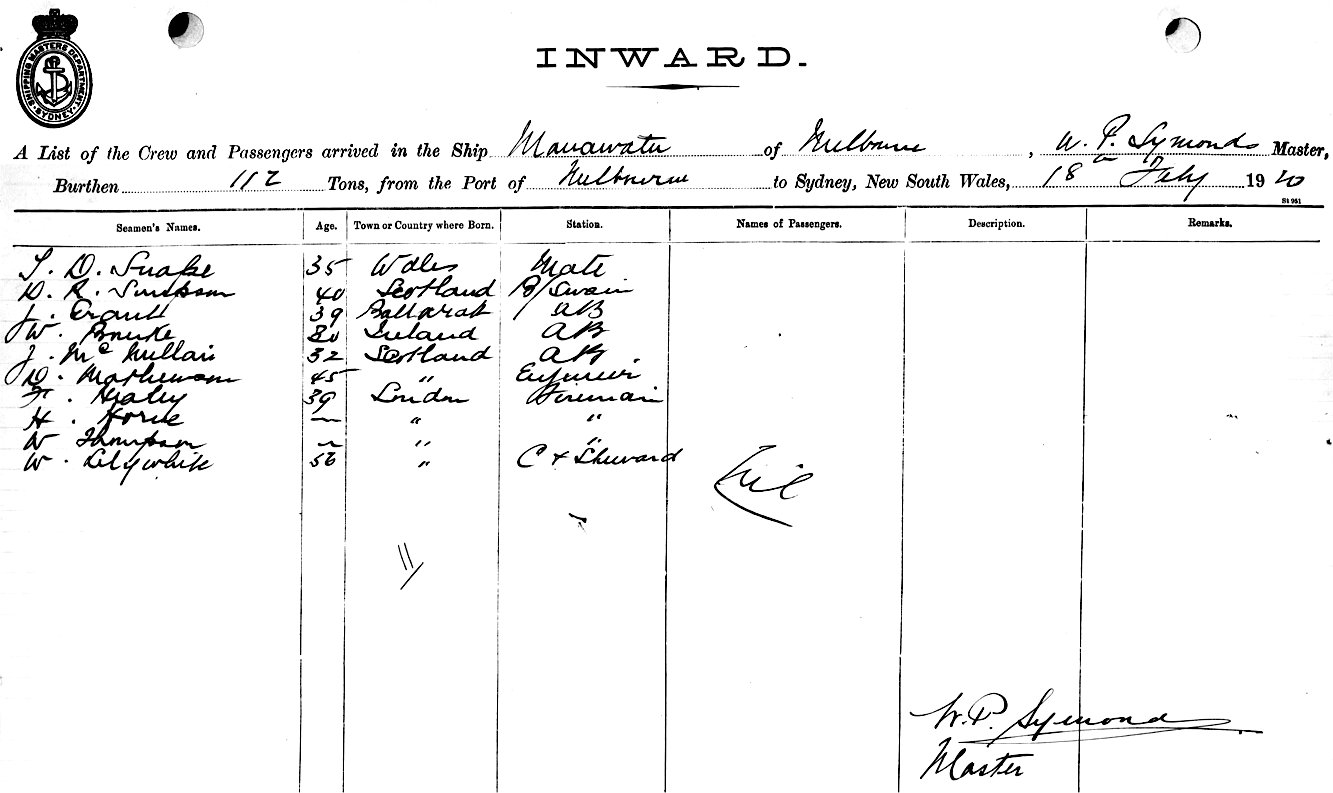 SHIPPING MASTERS DEPARTMENT
SYDNEY
INWARD.
A List of the Crew and Passengers arrived in the Ship Manawatu of Melbourne, W. P. Symonds Master,
Burthen 112 Tons, from the Port of Melbourne to Sydney, New South Wales, 18th Feby 1920
St 951
Seamen's Names. Age. Town or Country where Born. Station. Names of Passengers. Description. Remarks.
D. 35 Wales Mate
D. R. Simpson 40 Scotland B/Swain
J. Grant 39 Ballarat AB
W. Bourke Ireland AB
J. McMullan 32 Scotland AB
D. Mathewson 45 " Engineer
Healy 39 London Fireman
H. Horne — " "
W Thompson — " "
W. Lilywhite 56 " C & Steward
Nil
11
W. P. Symonds
Master